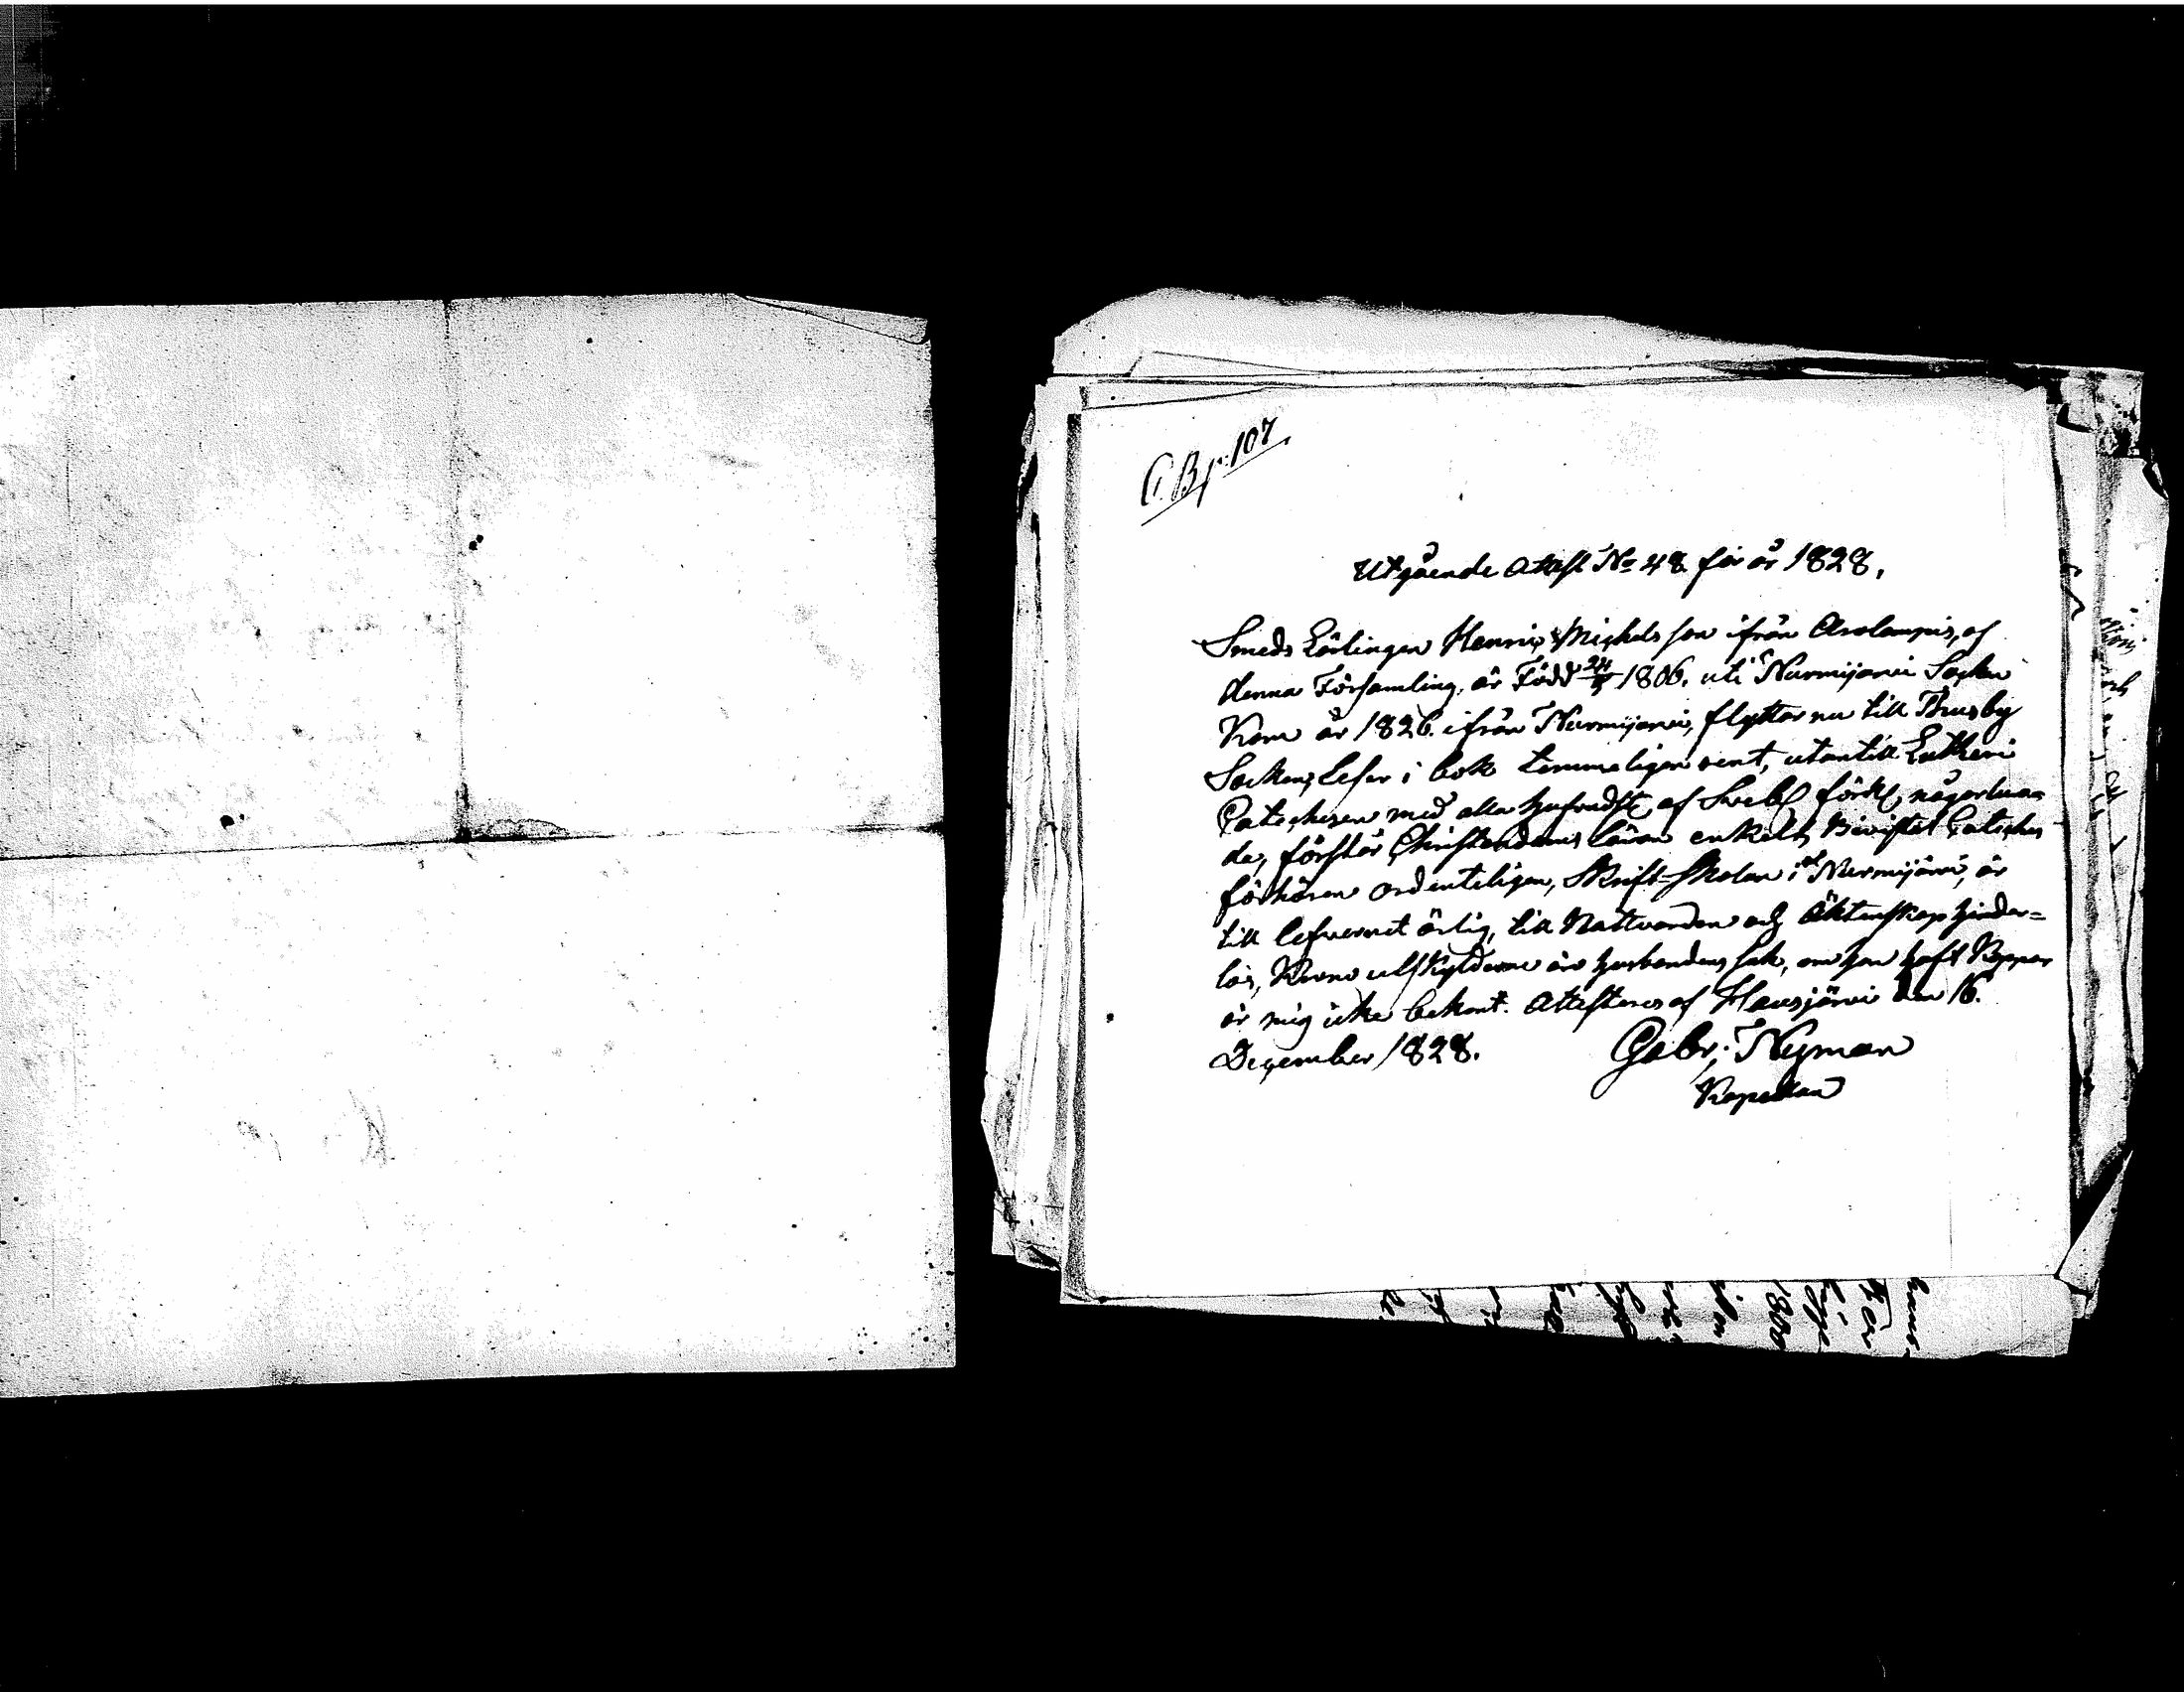 CB p: 107.
Utgående Attest No 48 för år 1828.
Smeds Lärlingen Henric Michelsson ifrån Arolampis, af
denna Församling, är Född 24/5 1806. uti Nurmijärvi Socken
Kom år 1826. ifrån Nurmijärvi, flyttar nu till Thusby
Socken, Läser i bok temmeligen rent, utantill Lutheri
Catechesen med alla hufvudst. af Sveb. förkl. någorlunda
de, förstår Christendoms läran enkelt, Bivistat Catechis
förhören ordenteligen, Skrift-Skolan i Nurmijärvi, är
till lefvernet ärlig, till Nattvarden och Äktenskap hinder=
lös, Krono utskylderne äro husbondens sak, om han haft Koppor
är mig icke bekant. Attesteras af Hausjärvi den 16.
December 1828.
Gabr: Nyman
Kapellan